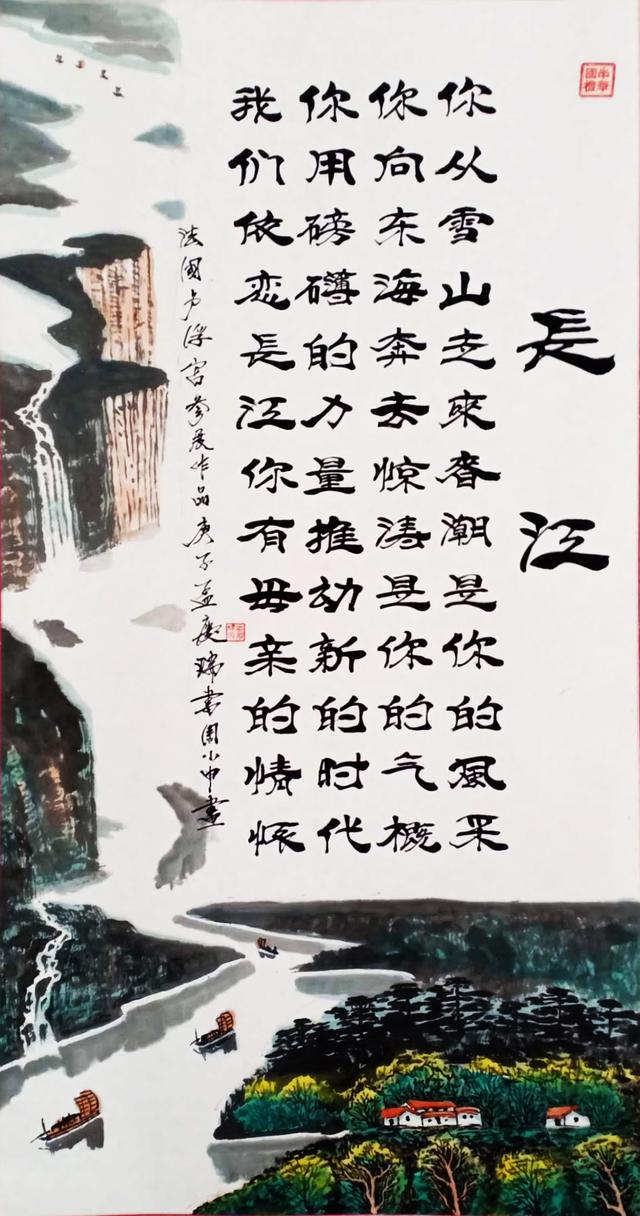 中華國粹
長江
你从雪山走來春潮是你的風采
你向东海奔去惊涛是你的气概
你用磅礴的力量推动新的时代
我们依恋長江你有母亲的情怀
法國卢浮宫参展作品庚子孟庭瑞書周小中畫